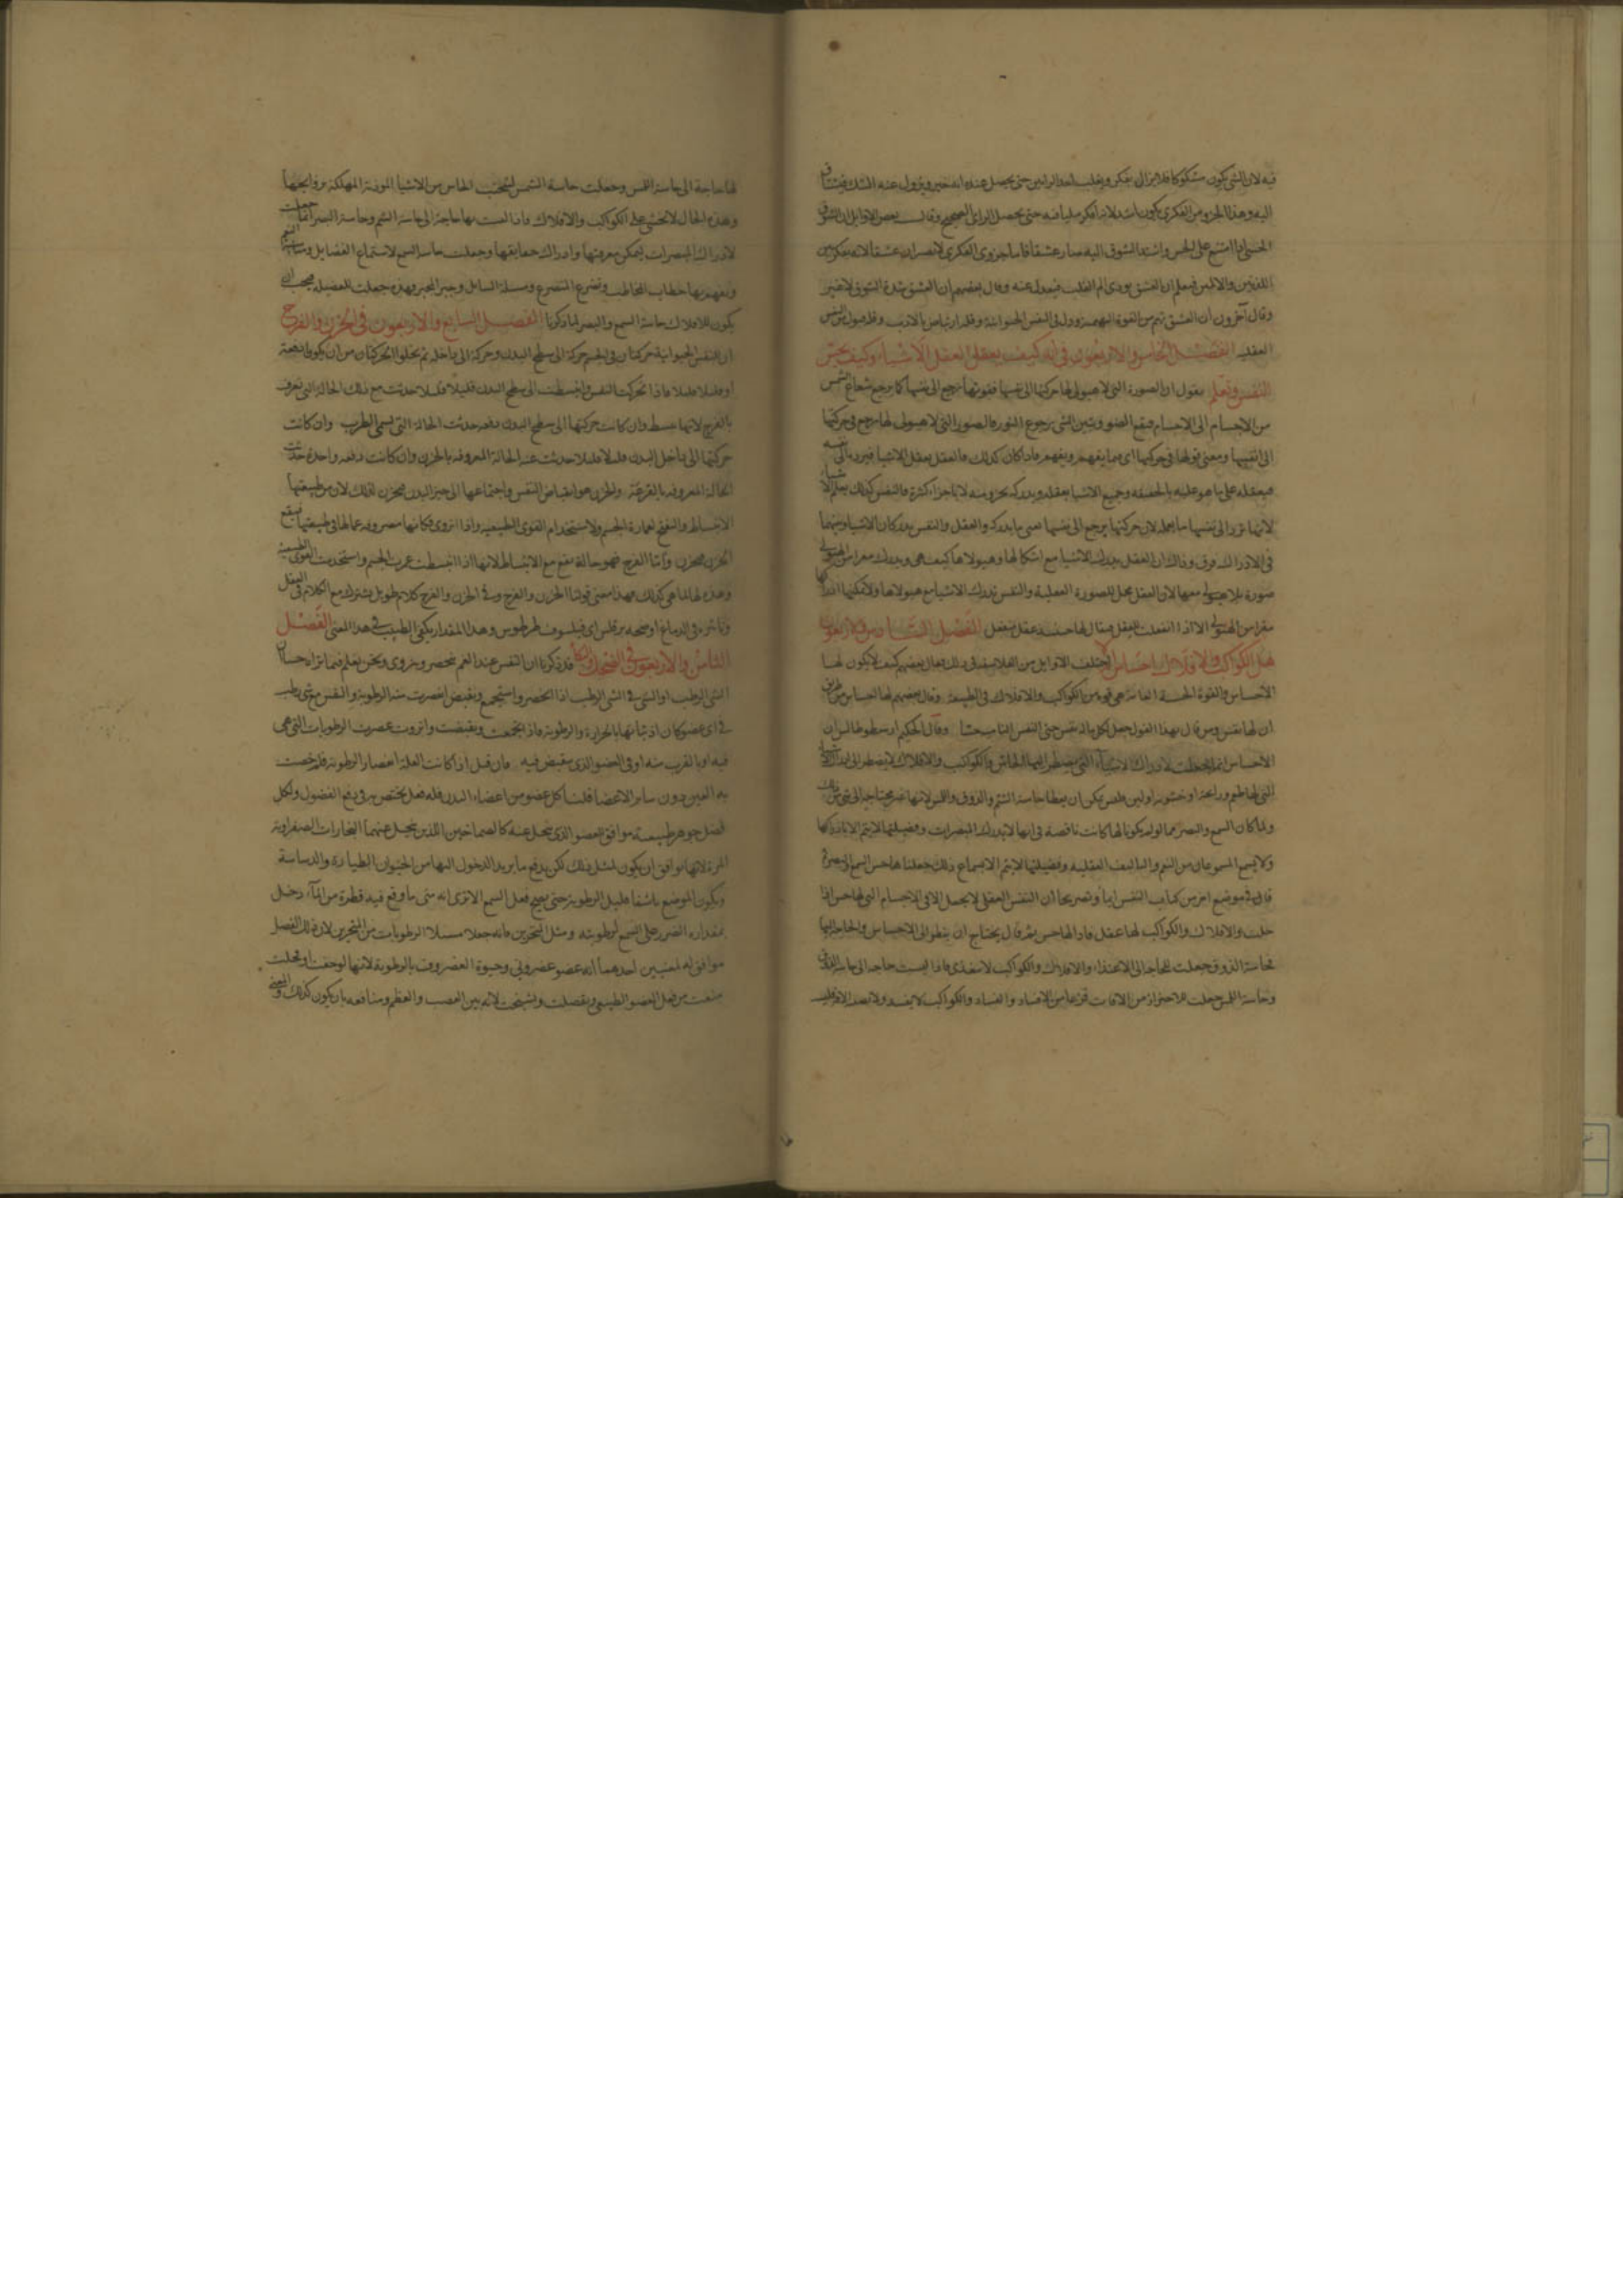 فيه لان الشي يكون مشكوكا فلا يزال يفكر ويغلب احد الرايين حتى يحصل عنده انه خير ويزول عنه الشك فيشتاق
اليه وهذا الجزو من الفكري يكون اشد لانه افكر مليا فيه حتى يحصل الراي الصحيح وقال بعض الاوايل ان الشوق
الحسي اذا اتسع على الحس واشتد الشوق اليه صار عشقا فاما جزوى الفكرى لا يصيران عشقا لانه
والالمين فيعلم ان العشق يودى الم القلب فيعدل عنه وقال بعضهم ان العشق شدة الشوق لا غير
وقال آخرون ان العشق يتم من القوة البهيمية وول في النفس الحيوانية وقلة ارتياض بالادب وقلة قبول من النفس
العقلية الفصل الخامس والاربعون في انه كيف يعقل العقل الاشياء وكيف يحس
النفس وتعلم نقول ان الصورة التي لا هيولى لها حركتها الى نفسها فقوتها ترجع الى نفسها كما يرجع شعاع الشمس
من الاجسام الى الاجسام فيقع الضوو ويتبين الشي برجوع النور فالصور التي لا هيولى لها يرجع في حركتها
الى نفسها ومعنى قولنا في حركتها اى فيما يفهم ويفهم فاذا كان كذلك فالعقل يعقل الاشيا فيرد الى نفسه
فيعقله على ما هو عليه بالحقيقة وجميع الاشيا يعقله ويدركه بجزو منه لا باجزاء كثيرة فالنفس كذلك يعلم الاشياء
لانها ترد الى نفسها ما يعلم لان حركتها يرجع الى نفسها يعني ما يدركه والعقل والنفس يدركان الاشيا وبينهما
في الادراك فرق وذاك ان العقل يدرك الاشيا مع اشكالها وهيولاها كيف هي ويدرك معرا من الهيولى
صورة بلا هيولى معها لان العقل محل للصورة العقلية والنفس تدرك الاشيا مع هيولاها ولا يمكنها ادراكها
معراس الهيولى الا اذا انفعلت للعقل فيقال لها حينئذ عقل منفعل الفصل السادس والاربعون
هل الكواكب والافلاك احساس ام لا اختلف الاوايل من الفلاسفة في ذلك فقال بعضهم كيف لا يكون لها
الاحساس والقوة الحسية العامة هي قوة من الكواكب والافلاك في الطبيعة وقال بعضهم لها احساس من طريق
ان لها نفس ومن قال بهذا القول جعل لكل بالنفس حتى النفس النامية حسا وقال الحكيم ارسطوطاليس ان
الاحساس انما جعلت لادراك الاشياء التي يضطر اليها الحاس والكواكب والافلاك لا يضطر الى ادراك الاشيا
التي لها طعم ورائحة او خشونة او لين فليس يمكن ان يعطا حاسة الشم والذوق واللمس لانها غير محتاجة الى شي من ذلك
ولما كان السمع والبصر مما لو لم يكونا لها كانت ناقصة في انها لا يدرك المبصرات وفضيلتها لا يتم الا بادراكها
ولا يسمع المسموعات من النغم والتاليف العقلية وفضيلتها لا يتم الا بسماع ذلك جعلنا لها حس السمع والبصر
قال في موضع اخر من كتاب النفس ايما وتصريحا ان النفس العقل لا يجعل الا في الاجسام التي لها حس اذا
حلت والافلاك والكواكب لها عقل فاذا لها حس ثم قال يحتاج ان ينظر الى الاحساس والحاجة اليها
فحاسة الذوق جعلت للحاجة الى الاغتذاء والافلاك والكواكب لا يتغذى فاذا ليست حاجة الى حاسة الذوق
وحاسة اللمس جعلت للاحتراز من الافات من الافساد والفساد والكواكب لا يفسد ولا يفسد الافلاك فليس
لها حاجة الى حاسة اللمس وجعلت حاسة الشم ليتجنب الحاس من الاشيا الموذية المهلكة بروايحها
وهذه الحال لا يخشى على الكواكب والافلاك فاذا ليست بها حاجة الى حاسة الشم وحاسة البصر انما جعلت
لادراك المبصرات ليمكن معرفتها وادراك حقايقها وجعلت حاسة السمع لاستماع الفضايل
ويفهم بها خطاب المخاطب وتضرع المتضرع ومسئلة السايل وخبر المخبر وهذه جعلت للفضيلة فيجب ان
يكون للافلاك حاسة السمع والبصر لما ذكرنا الفصل السابع والاربعون في الحزن والفرح
ان للنفس الحيوانية حركتان في الجسم حركة الى سطح البدن وحركة الى داخله ثم تخلوا الحركتان من ان يكونا دفعة
او قليلا قليلا فاذا تحركت النفس وانبسطت الى سطح البدن قليلا قليلا حدثت مع ذلك الحالة التي تعرف
بالفرح لانها تنبسط وان كانت حركتها الى سطح البدن دفعة حدثت الحالة التي تسمى الطرب وان كانت
حركتها الى داخل البدن قليلا قليلا حدثت عنه الحالة المعروفة بالحزن وان كانت دفعة واحدة حدثت
الحالة المعروفة بالفزعة والحزن هو انقباض النفس واجتماعها الى حيز البدن فيحزن لذلك لان من طبيعتها
الانبساط والتفتح لعمارة الجسم ولاستخدام القوى الطبيعية واذا انزوى فكانها مصروفة عما لها في طبيعتها فيقع
الحزن فيحزن واما الفرح فهو حالة تقع مع الانبساط لانها اذا انبسطت عمرت الجسم واستخدمت القوى الطبيعية
وهذه لها لما هي كذلك فهذا معنى قولنا الحزن والفرح وفي الحزن والفرح كلام طويل يشترك مع الكلام في العقل
وتاثيره في الدماغ اوضحه برقلس اى فيلسوف طرطوس وهذا المقدار يكفى الطبيب في هذا المعنى الفصل
الثامن والاربعون في الضحك والبكا قد ذكرنا ان النفس عند الغم ينحصر وينزوى ونحن نعلم فيما نراه حسا ان
الشى الرطب او الشى في الشى الرطب اذا انحصر واستجمع وتقبض انعصرت منه الرطوبة والنفس مع شى رطب
في اى عضو كان اذ ثباتها بالحرارة والرطوبة فاذا اجتمعت وتقبضت وانزوت عصرت الرطوبات التي هي
فيه او بالقرب منه او في العضو الذى ينقبض فيه فان قيل اذا كانت العلة انعصار الرطوبة فلم خصت
به العين دون ساير الاعضا قلنا كل عضو من اعضاء البدن فله فعل يختص به في دفع الفضول ولكل
فضل جوهر طبيعته موافق للعضو الذى يتحلل عنه كالصماخين اللذين يتحلل عنهما البخارات الصفراوية
المرة لانها توافق ان يكون لمثل ذلك لكى يدفع ما يريد الدخول اليها من الحيوان الطيارة والدساسة
ويكون الموضع ناشفا قليل الرطوبة حتى يصح فعل السمع الا ترى انه متى ما وقع فيه قطرة من الماء دخل
بمقداره الضرر على السمع لرطوبته ومثل المنخرين فانه جعلا مسيلا الرطوبات من المنخرين لان ذلك الفضل
موافق له لمعنيين احدهما انه عضو غضروفي وحيوة الغضروف بالرطوبة لانها لو جفت او قحلت
منعت من فعل العضو الطبيعي وتفصلت وتشنجت لانه بين العصب والعظم ومنافعه بان يكون كذلك